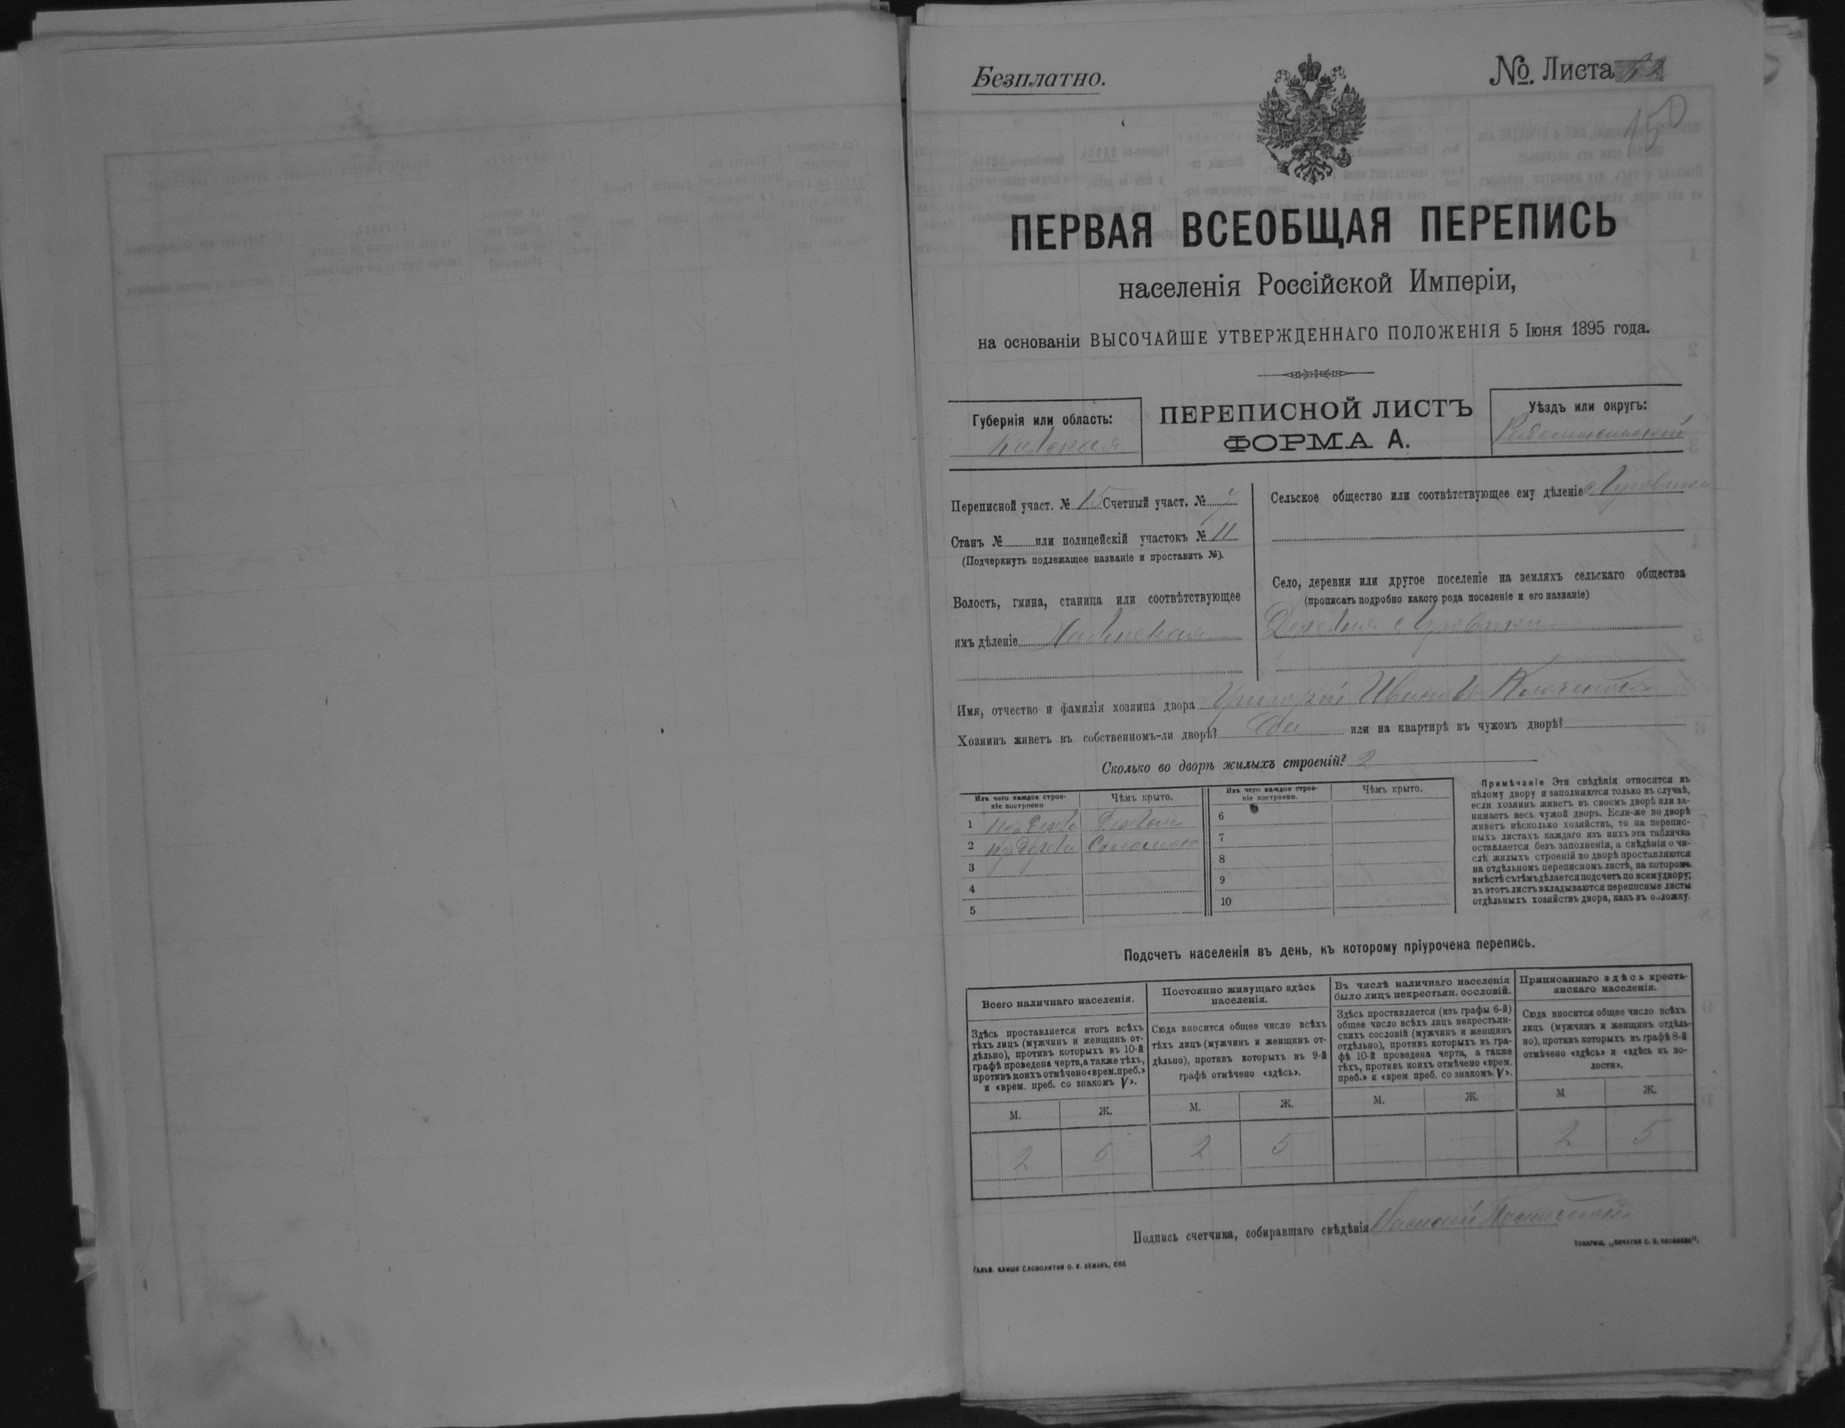 Безплатно.
№ Листа
150
ПЕРВАЯ ВСЕОБЩАЯ ПЕРЕПИСЬ
населенія Россійской Имперіи,
на основаніи ВЫСОЧАЙШЕ УТВЕРЖДЕННАГО ПОЛОЖЕНІЯ 5 Іюня 1895 года.
Губернія или область:
Кіевская
ПЕРЕПИСНОЙ ЛИСТЪ
ФОРМА А.
Уѣздъ или округъ:
Радомысльскій
Переписной участ. № 15 Счетный участ. №
Станъ № или полицейскій участокъ № 11
(Подчеркнуть подлежащее названіе и проставить №).
Волость, гмина, станица или соотвѣтствующее
имъ дѣленіе
Сельское общество или соотвѣтствующее ему дѣленіе
Село, деревня или другое поселеніе на земляхъ сельскаго общества
(прописать подробно какого рода поселеніе и его названіе)
Деревня
Имя, отчество и фамилія хозяина двора Григорій Иванов
Хозяинъ живетъ въ собственномъ-ли дворѣ? Да или на квартирѣ въ чужомъ дворѣ?
Сколько во дворѣ жилыхъ строеній? 2
Изъ чего каждое строеніе построено
Чѣмъ крыто.
1
2 Соломою
3
4
5
Изъ чего каждое строеніе построено.
Чѣмъ крыто.
6
7
8
9
10
Примѣчаніе Эти свѣдѣнія относятся къ
цѣлому двору и заполняются только въ случаѣ,
если хозяинъ живетъ въ своемъ дворѣ или за-
нимаетъ весь чужой дворъ. Если-же во дворѣ
живетъ нѣсколько хозяйствъ, то на перепис-
ныхъ листахъ каждаго изъ нихъ эта табличка
оставляется безъ заполненія, а свѣдѣнія о чи-
слѣ жилыхъ строеній во дворѣ проставляются
на отдѣльномъ переписномъ листѣ, на которомъ
вмѣстѣ съ тѣмъ дѣлается подсчетъ по всему двору;
въ этотъ листъ вкладываются переписные листы
отдѣльныхъ хозяйствъ двора, какъ въ обложку.
Подсчетъ населенія въ день, къ которому пріурочена перепись.
Всего наличнаго населенія.
Здѣсь проставляется итогъ всѣхъ
тѣхъ лицъ (мужчинъ и женщинъ от-
дѣльно), противъ которыхъ въ 10-й
графѣ проведена черта, а также тѣхъ,
противъ коихъ отмѣчено «врем. преб.»
и «врем. преб. со знакомъ V».
М. Ж.
2
Постоянно живущаго здѣсь
населенія.
Сюда вносится общее число всѣхъ
тѣхъ лицъ (мужчинъ и женщинъ от-
дѣльно), противъ которыхъ въ 9-й
графѣ отмѣчено «здѣсь».
М. Ж.
2 5
Въ числѣ наличнаго населенія
было лицъ некрестьян. сословій.
Здѣсь проставляется (изъ графы 6-й)
общее число всѣхъ лицъ некрестьян-
скихъ сословій (мужчинъ и женщинъ
отдѣльно), противъ которыхъ въ гра-
фѣ 10-й проведена черта, а также
тѣхъ, противъ коихъ отмѣчено «врем.
преб.» и «врем преб. со знакомъ V».
М. Ж.
Приписаннаго здѣсь кресть-
янскаго населенія.
Сюда вносится общее число всѣхъ
лицъ (мужчинъ и женщинъ отдѣль-
но), противъ которыхъ въ графѣ 8-й
отмѣчено «здѣсь» и «здѣсь къ во-
лости».
М Ж.
2 5
Подпись счетчика, собиравшаго свѣдѣнія
ГАЛЬВ. КЛИШЕ СЛОВОЛИТНИ О. И. ЛЕМАНЪ, СПБ
ТОВАРИЩ. „ПЕЧАТНИ С. П. ЯКОВЛЕВА“.